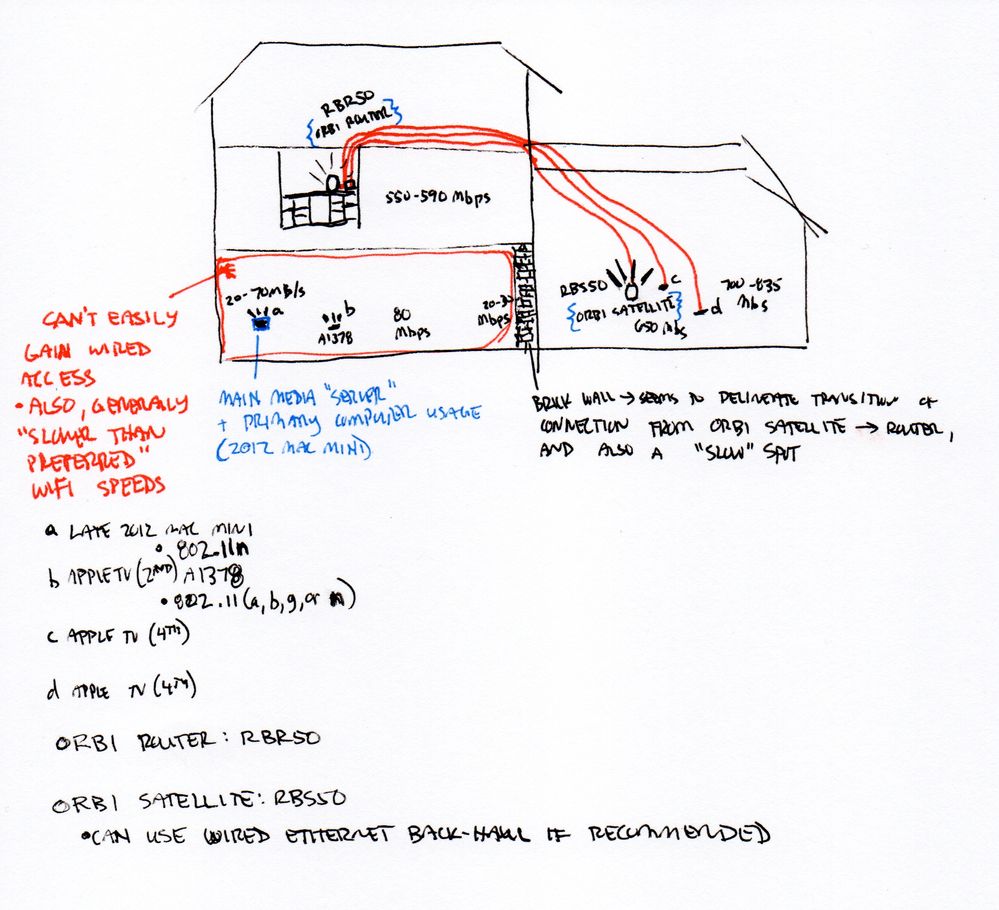 RBR50
{ORBI ROUTER}
550-590 Mbps
RBS50
{ORBI SATELLITE}
650 Mbs
c
d
700-835
Mbs
20-70MB/s
a
b
A1378
80
Mbps
Mbps
CAN'T EASILY
GAIN WIRED
ACCESS
• ALSO, GENERALLY
"SLOWER THAN
PREFERRED"
WIFI SPEEDS
MAIN MEDIA "SERVER"
+ PRIMARY COMPUTER USAGE
(2012 MAC MINI)
BRICK WALL → SEEMS TO DELINEATE TRANSITION OF
CONNECTION FROM ORBI SATELLITE → ROUTER,
AND ALSO A "SLOW" SPOT
a LATE 2012 MAC MINI
• 802.11n
b APPLE TV (2ND) A1378
• 802.11 (a, b, g, or n)
c APPLE TV (4TH)
d APPLE TV (4TH)
ORBI ROUTER: RBR50
ORBI SATELLITE: RBS50
• CAN USE WIRED ETHERNET BACK-HAUL IF RECOMMENDED